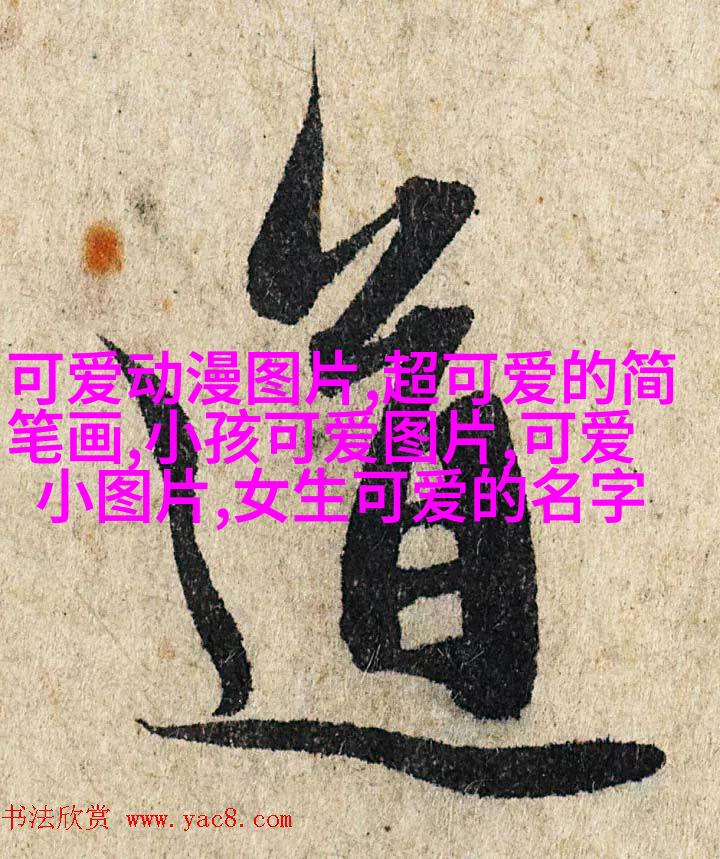 道
可爱动漫图片,超可爱的简
笔画,小孩可爱图片,可爱
小图片,女生可爱的名字
书法欣赏 www.yac8.com